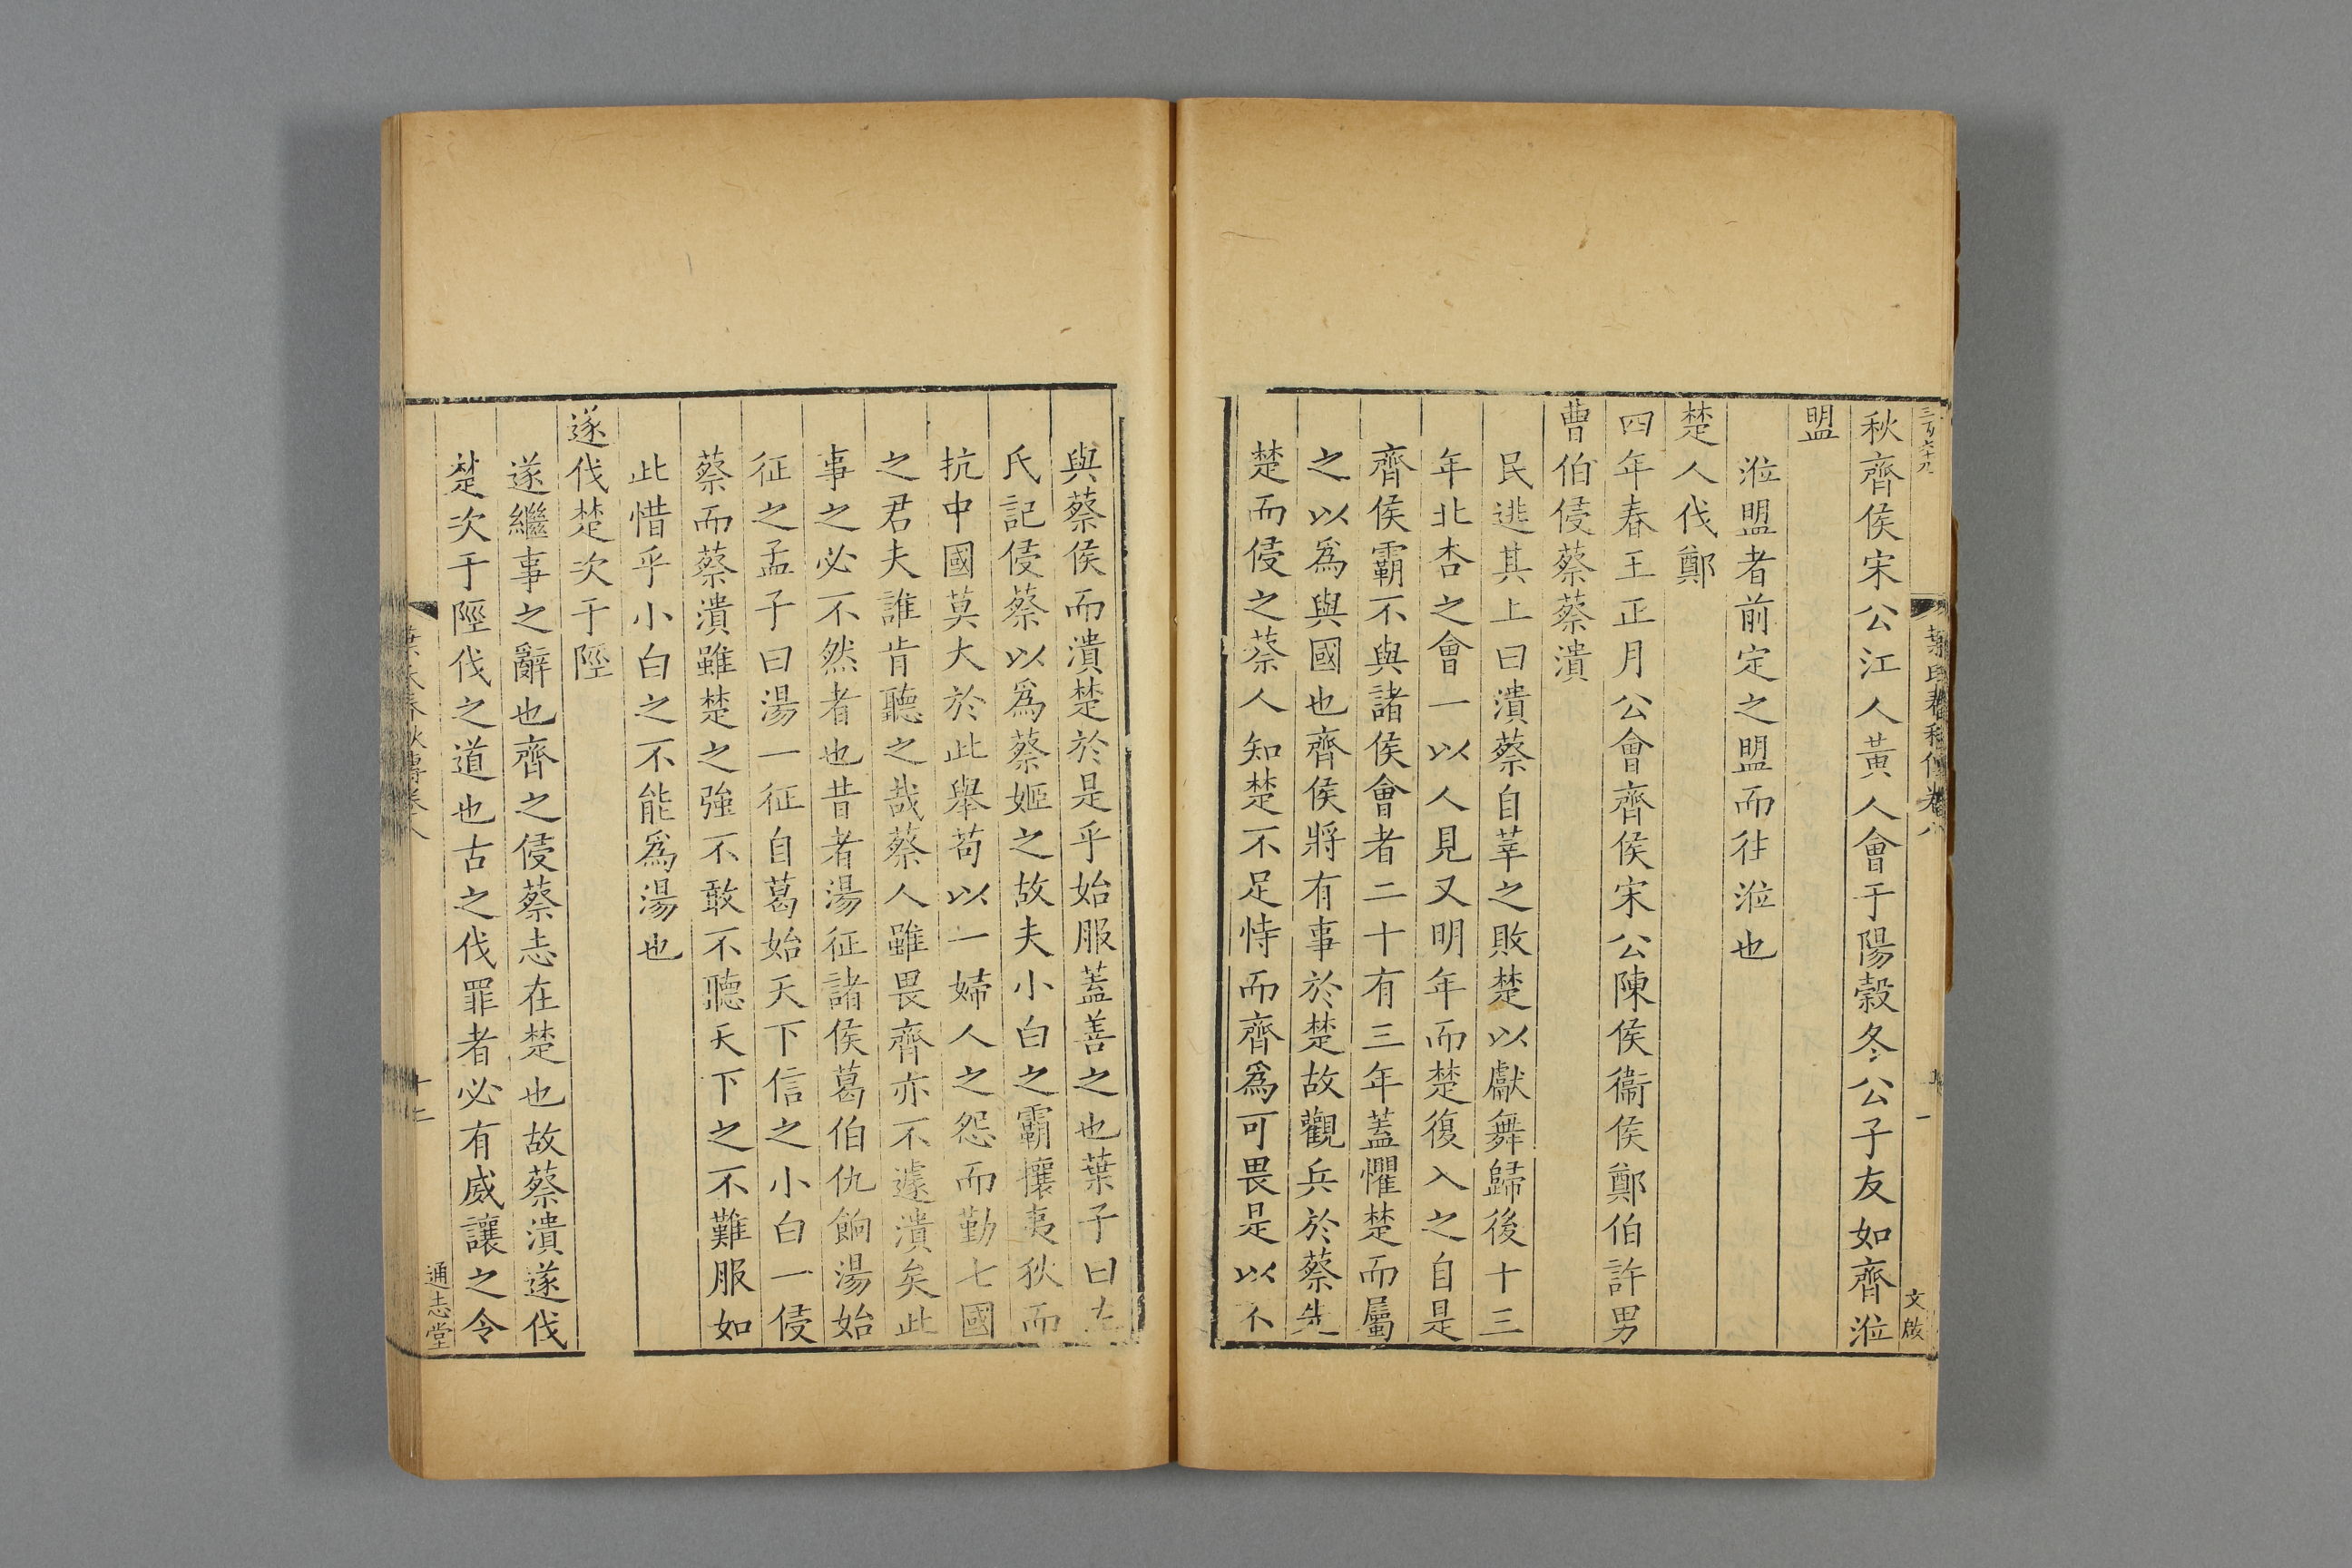 三百六十九
葉氏春秋傳卷八
文啟
秋齊侯宋公江人黃人會于陽穀冬公子友如齊涖
盟
涖盟者前定之盟而往涖也
楚人伐鄭
四年春王正月公會齊侯宋公陳侯衞侯鄭伯許男
曹伯侵蔡蔡潰
民逃其上曰潰蔡自莘之敗楚以獻舞歸後十三
年北杏之會一以人見又明年而楚復入之自是
齊侯霸不與諸侯會者二十有三年蓋懼楚而屬
之以爲與國也齊侯將有事於楚故觀兵於蔡先
楚而侵之蔡人知楚不足恃而齊爲可畏是以不
與蔡侯而潰楚於是乎始服蓋善之也葉子曰左
氏記侵蔡以爲蔡姬之故夫小白之霸攘夷狄而
抗中國莫大於此舉苟以一婦人之怨而勤七國
之君夫誰肯聽之哉蔡人雖畏齊亦不遽潰矣此
事之必不然者也昔者湯征諸侯葛伯仇餉湯始
征之孟子曰湯一征自葛始天下信之小白一侵
蔡而蔡潰雖楚之強不敢不聽天下之不難服如
此惜乎小白之不能爲湯也
遂伐楚次于陘
遂繼事之辭也齊之侵蔡志在楚也故蔡潰遂伐
楚次于陘伐之道也古之伐罪者必有威讓之令
葉氏春秋傳卷八
十二
通志堂